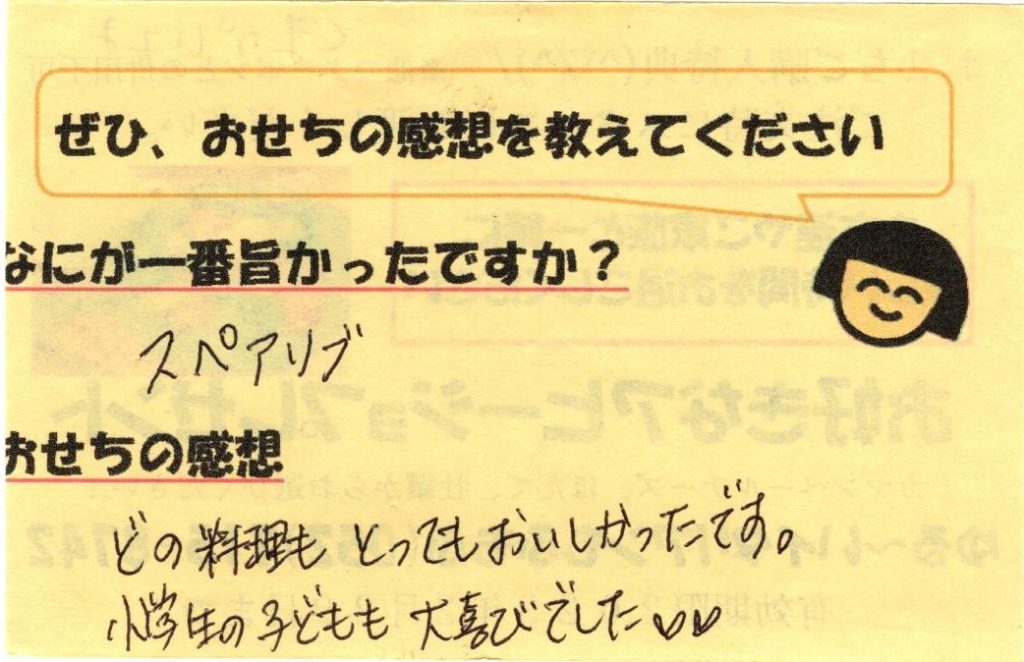 ぜひ、おせちの感想を教えてください
なにが一番旨かったですか？
スペアリブ
おせちの感想
どの料理も とってもおいしかったです。
小学生の子どもも 大喜びでした♡♡